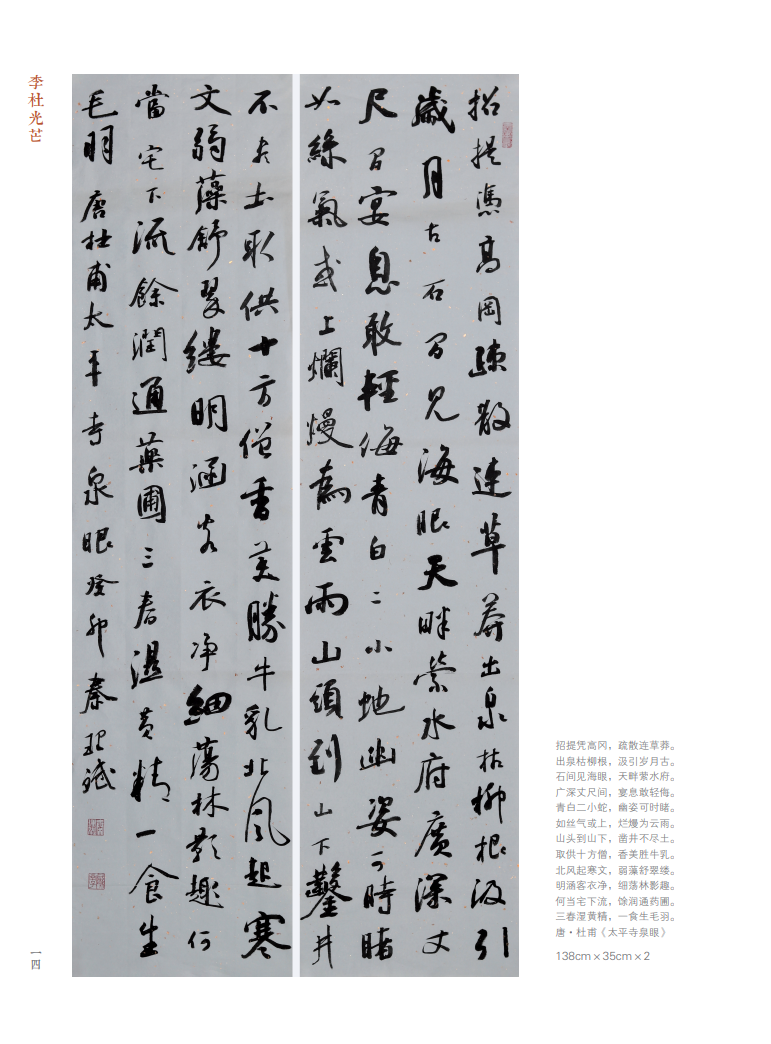 李杜光芒
招提憑高岡疎散連草莽出泉枯柳根汲引
歲月古石間見海眼天畔縈水府廣深丈
尺間宴息敢輕侮青白二小虵幽姿可時睹
如絲氣或上爛熳為雲雨山頭到山下鑿井
不盡土取供十方僧香美勝牛乳北風起寒
文弱藻舒翠縷明涵客衣净細蕩林影趣何
當宅下流餘潤通藥圃三春濕黄精一食生
毛羽 唐杜甫太平寺泉眼癸卯秦
招提凭高冈，疏散连草莽。
出泉枯柳根，汲引岁月古。
石间见海眼，天畔萦水府。
广深丈尺间，宴息敢轻侮。
青白二小蛇，幽姿可时睹。
如丝气或上，烂熳为云雨。
山头到山下，凿井不尽土。
取供十方僧，香美胜牛乳。
北风起寒文，弱藻舒翠缕。
明涵客衣净，细荡林影趣。
何当宅下流，馀润通药圃。
三春湿黄精，一食生毛羽。
唐·杜甫《太平寺泉眼》
138cm×35cm×2
一四